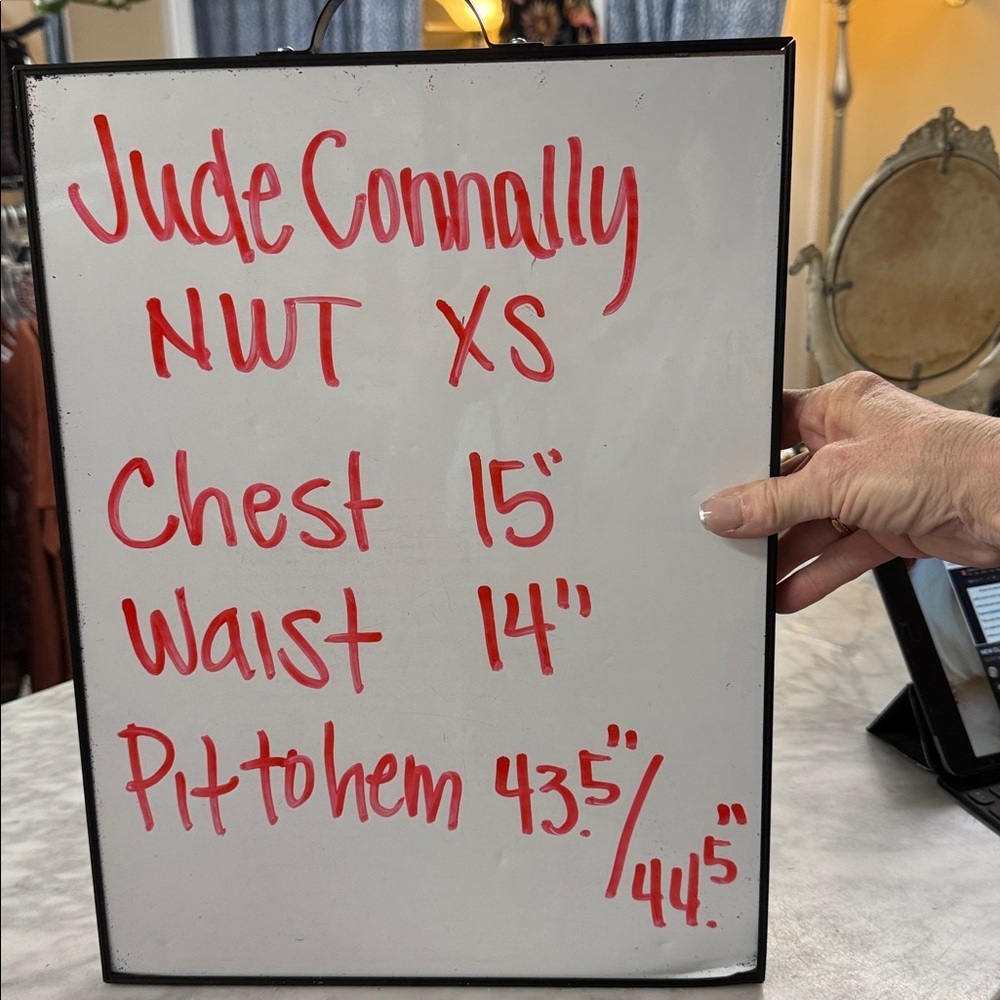 Jude Connally
NWT XS
Chest 15"
Waist 14"
Pit to hem 43.5"/
44.5"